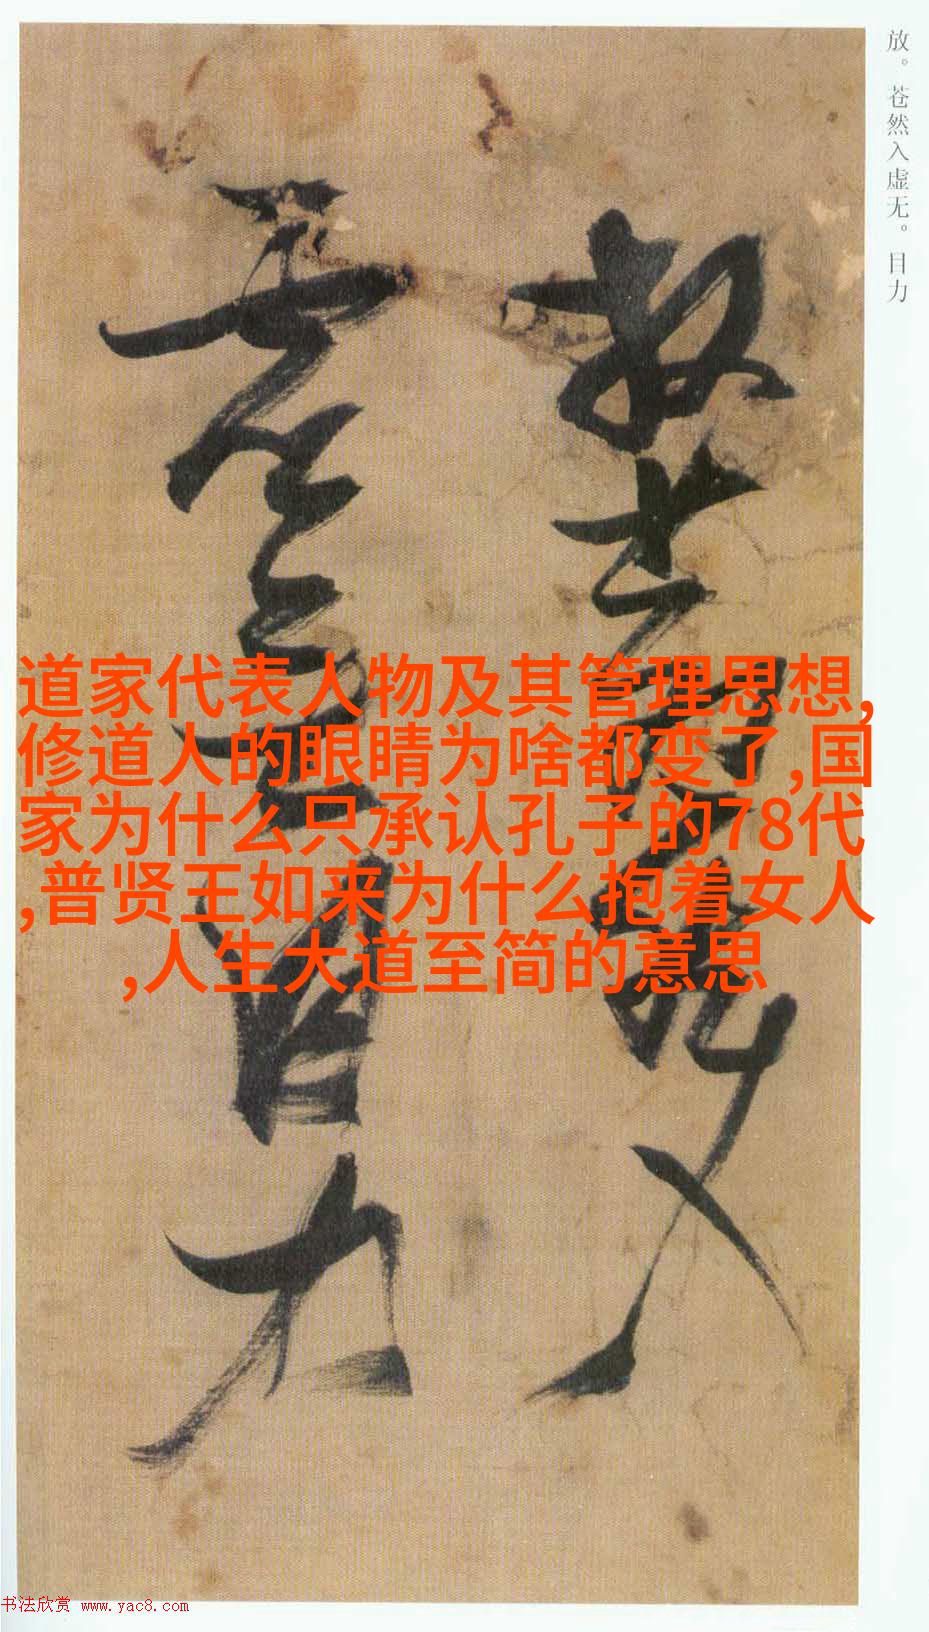 放。苍然入虚无。目力
放苍然入
虚无目力
道家代表人物及其管理思想,
修道人的眼睛为啥都变了,国
家为什么只承认孔子的78代
,普贤王如来为什么抱着女人
,人生大道至简的意思
书法欣赏 www.yac8.com